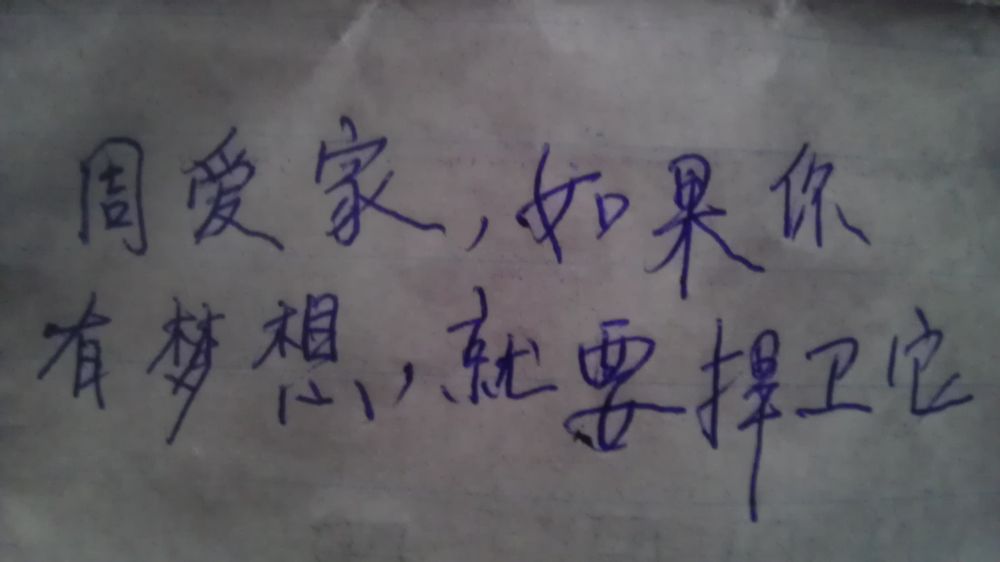 周爱家,如果你
有梦想,就要捍卫它